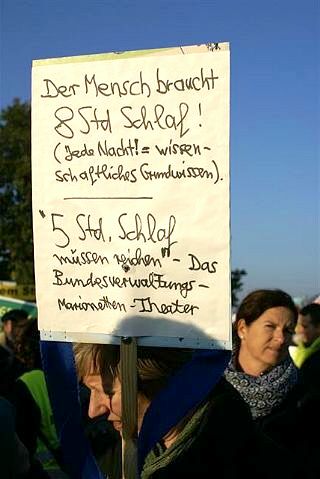 Der Mensch braucht
8 Std Schlaf!
(Jede Nacht! = wissen-
schaftliches Grundwissen).
"5 Std. Schlaf
müssen reichen" - Das
Bundesverwaltungs-
Marionetten-Theater